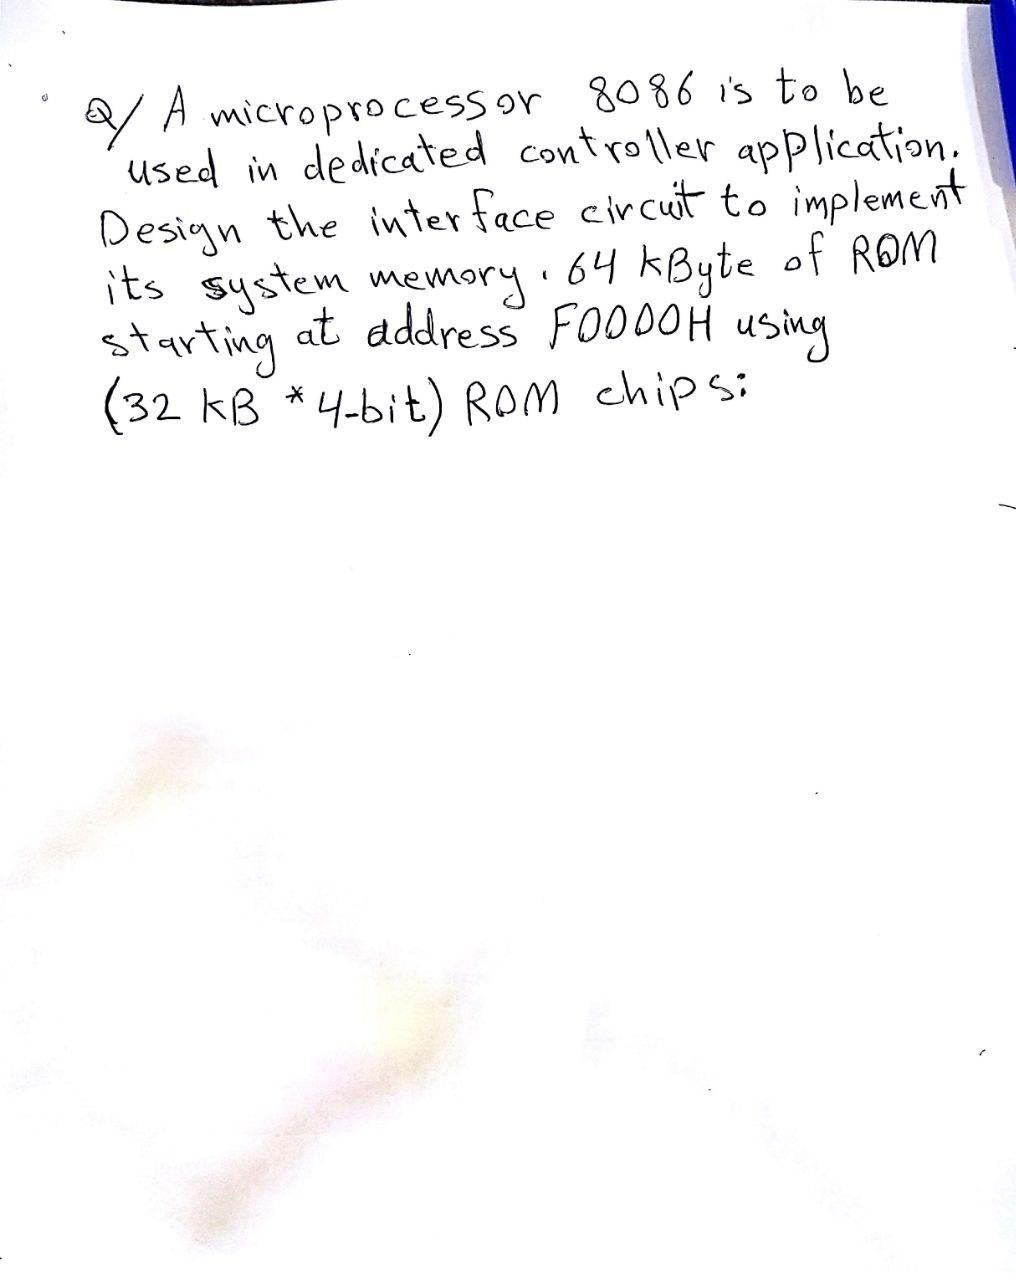 Q/ A microprocessor 8086 is to be
used in dedicated controller application.
Design the interface circuit to implement
its system memory. 64 kByte of ROM
starting at address F0000H using
(32 kB * 4-bit) ROM chips: